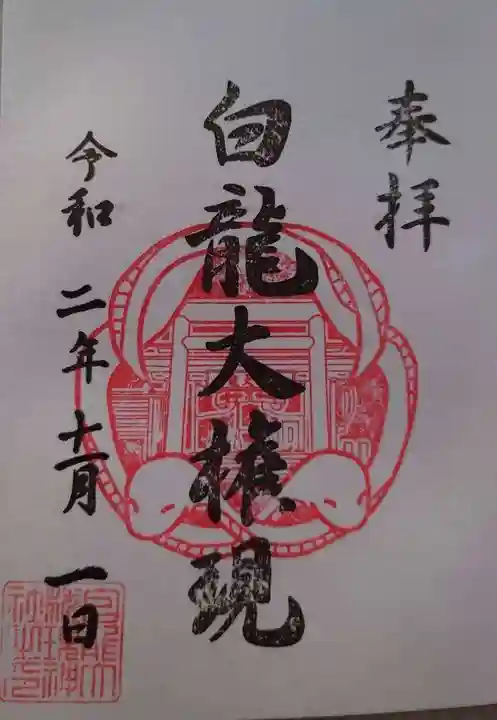 奉拝
白龍大権現
令和 二年 十一月 一日